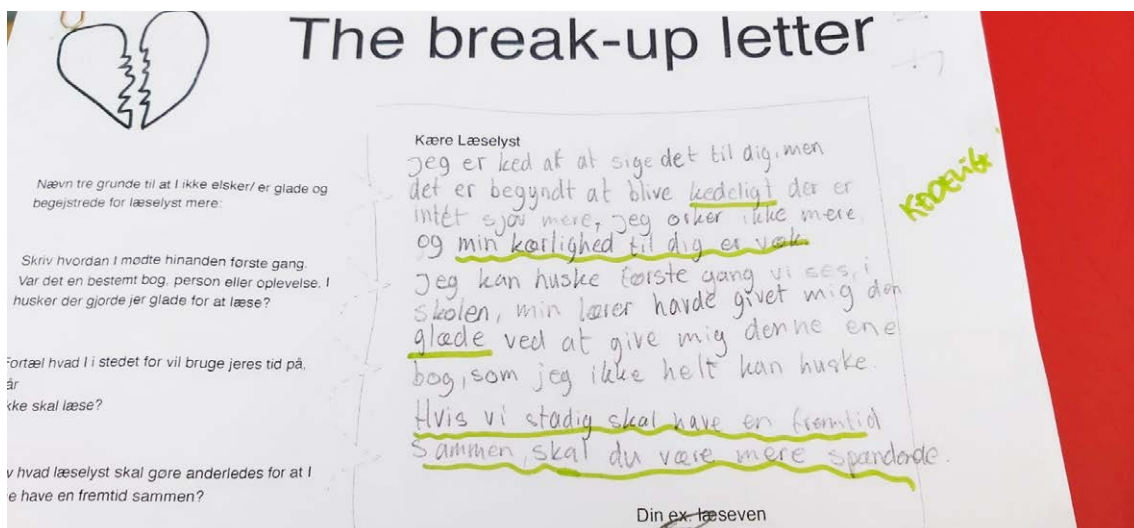 The break-up letter
Nævn tre grunde til at I ikke elsker/ er glade og
begejstrede for læselyst mere:
Skriv hvordan I mødte hinanden første gang.
Var det en bestemt bog, person eller oplevelse, I
husker der gjorde jer glade for at læse?
Fortæl hvad I i stedet for vil bruge jeres tid på,
år
kke skal læse?
v hvad læselyst skal gøre anderledes for at I
e have en fremtid sammen?
Kære Læselyst
Jeg er ked af at sige det til dig, men
det er begyndt at blive kedeligt der er
intet sjov mere, jeg orker ikke mere
og min kærlighed til dig er væk.
Jeg kan huske første gang vi ses, i
skolen, min lærer havde givet mig den
glæde ved at give mig denne ene
bog, som jeg ikke helt kan huske.
Hvis vi stadig skal have en fremtid
Sammen, skal du være mere spændende.
Din ex. læseven
KEDELIGT